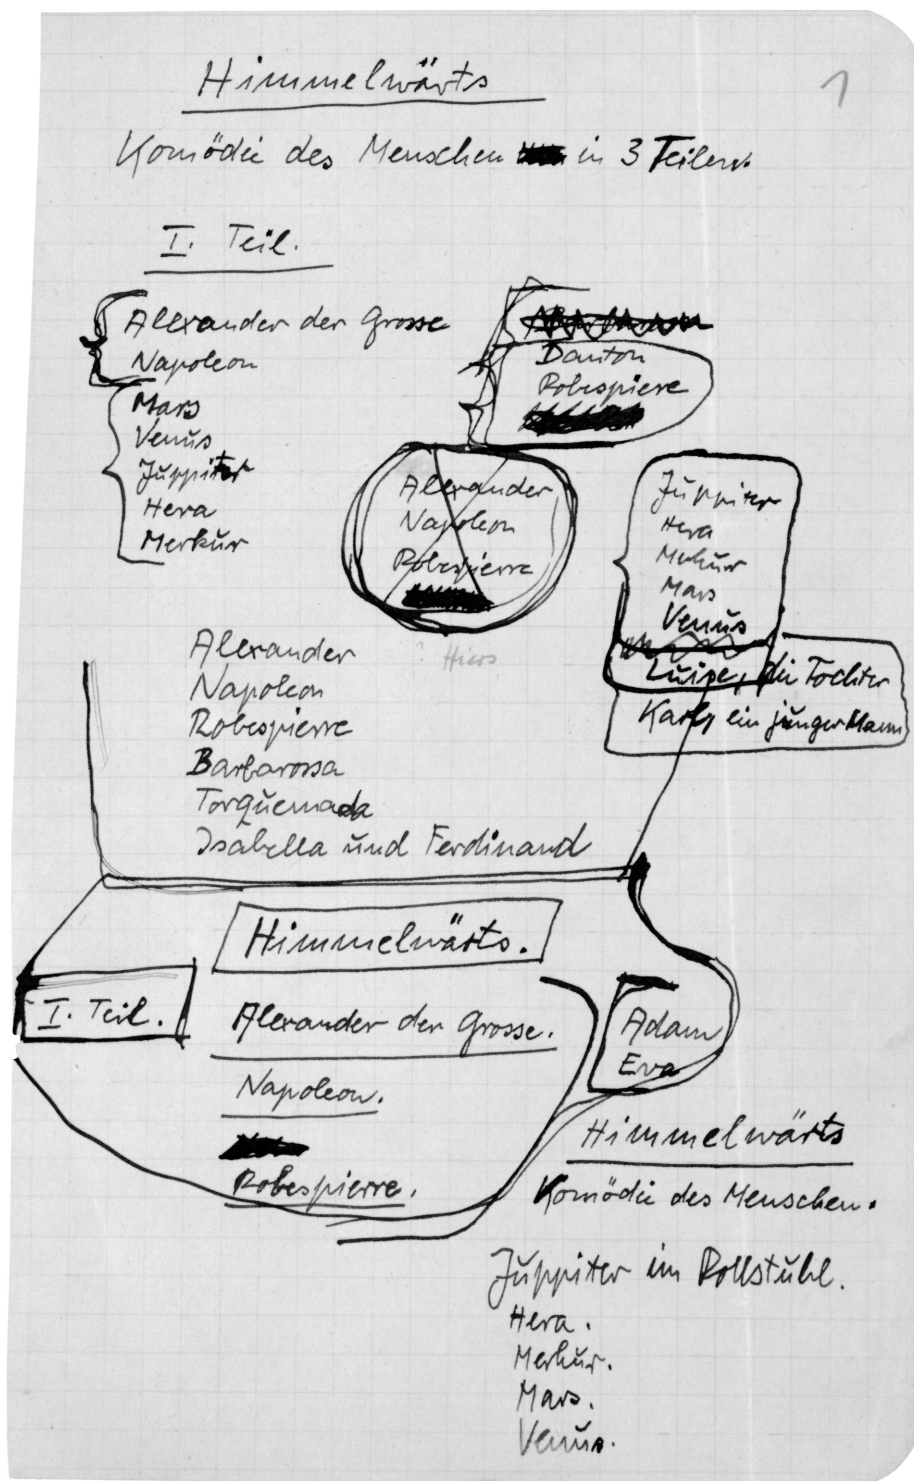 Himmelwärts
1
Komödie des Menschen in 3 Teilen.
I. Teil.
Alexander der Grosse
Napoleon
Mars
Venus
Juppiter
Hera
Merkur
Danton
Robespiere
Alexander
Napoleon
Robespierre
Jüppiter
Hera
Merkur
Mars
Venus
Luise, die Tochter
Karl, ein junger Mann
Alexander
Napoleon
Robespierre
Barbarossa
Torquemada
Isabella und Ferdinand
Himmelwärts.
I. Teil.
Alexander der Grosse.
Napoleon.
Robespierre.
Adam
Eva
Himmelwärts
Komödie des Menschen.
Juppiter im Rollstuhl.
Hera.
Merkur.
Mars.
Venus.